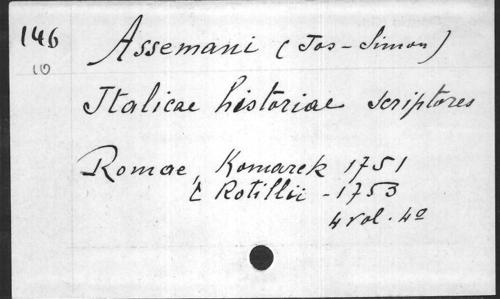 146
10
Assemani (Jos-Simon)
Italicae historiae scriptores
Romae, Komarek 1751
& Rotillii - 1753
4 vol. 4º